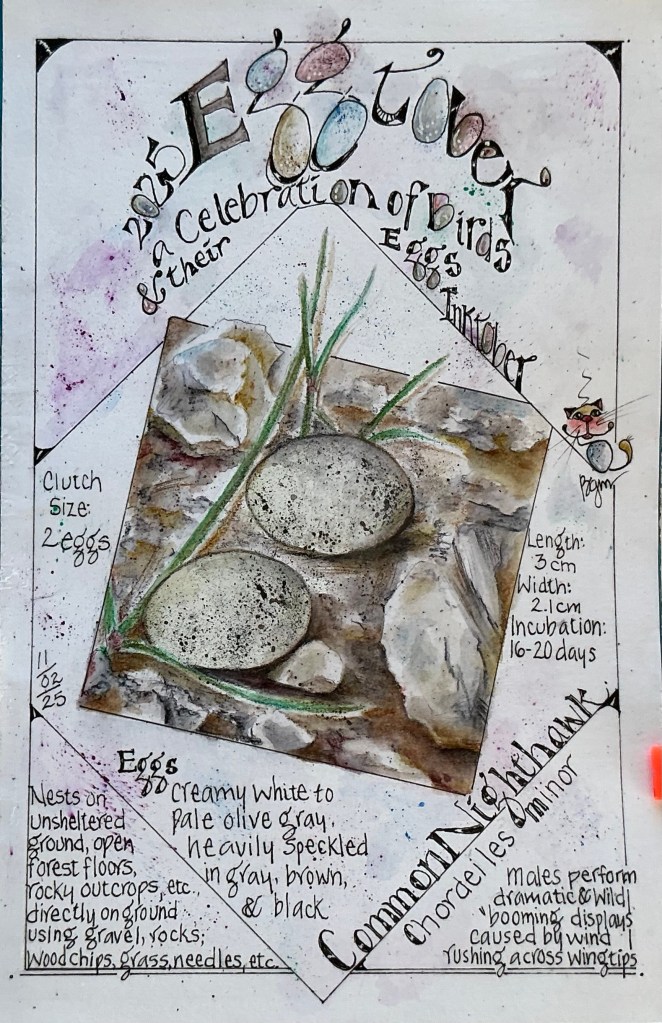 2025 Eggtober
a Celebration of Birds
& their Eggs
Inktober
Clutch
Size:
2 eggs
Length:
3 cm
Width:
2.1 cm
Incubation:
16-20 days
11/02/25
Eggs
Creamy white to
pale olive gray,
heavily speckled
in gray, brown,
& black
Nests on
unsheltered
ground, open
forest floors,
rocky outcrops, etc.
directly on ground
using gravel, rocks,
woodchips, grass, needles, etc.
Common Nighthawk
Chordeiles minor
Males perform
dramatic & wild
"booming displays
caused by wind
rushing across wingtips